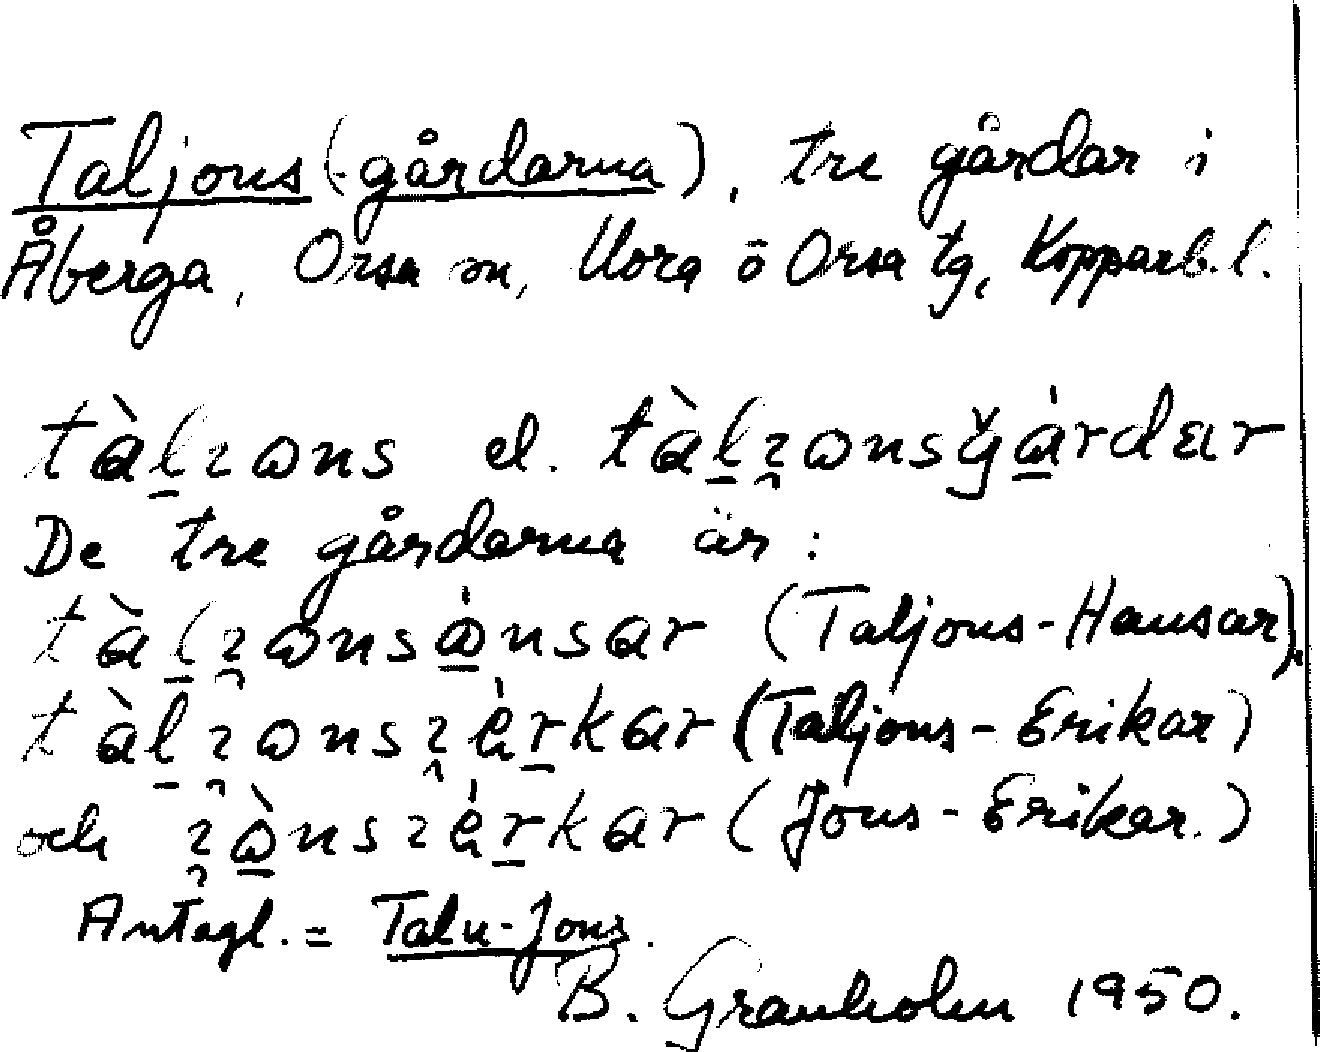 Taljons(-gårdarna), tre gårdar i
Åberga, Orsa sn, Mora o Orsa tg, Kopparb. l.
tàlɿɷns el. tàlɿɷnsgá̱rdar
De tre gårdarna är:
tàlɿɷnsɷ́nsar (Taljons-Hansar),
tàlɿɷnsɿèrkar (Taljons-Erikar)
och ɿɷ̀nsɿérkar (Jons-Erikar.)
Antagl. = Talu-Jons.
B. Granholm 1950.